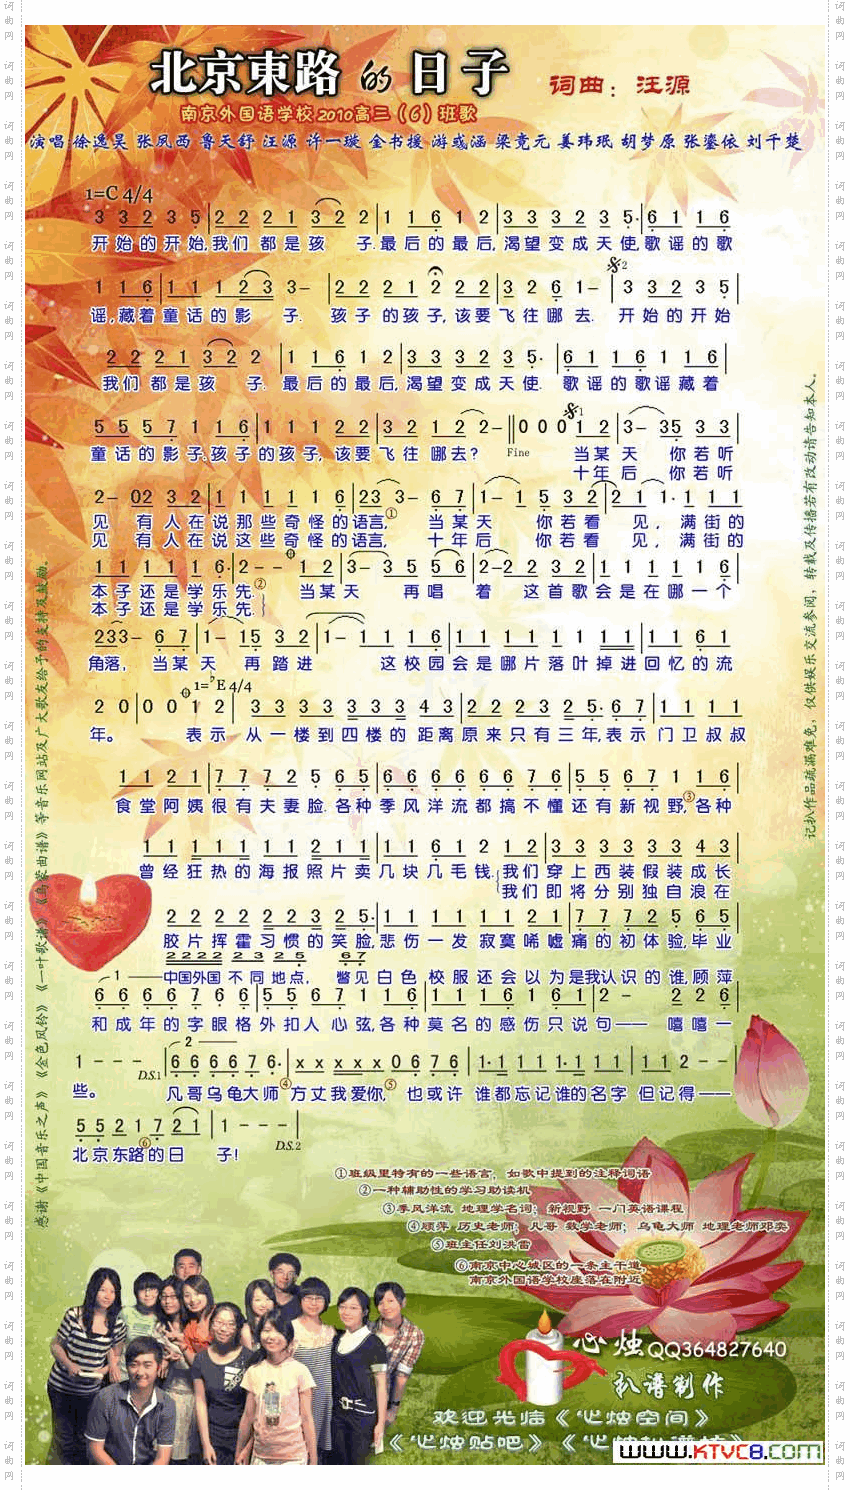 北京東路的日子
词曲：汪源
南京外国语学校2010高三（6）班歌
演唱 徐逸昊 张夙西 鲁天舒 汪源 许一璇 金书援 游彧涵 梁竟元 姜玮珉 胡梦原 张鎏依 刘千楚
1=C 4/4
3 3 2 3 5|2 2 2 1 3 2 2|1 1 6 1 2|3 3 3 2 3 5·|6 1 1 6
开始的开始,我们 都是孩 子.最后的最后,渴望变成天使,歌谣的歌
1 1 6|1 1 1 2 3 3-|2 2 2 1 2 2 2|3 2 6 1-|3 3 2 3 5
谣,藏着童话的影 子. 孩子的孩子,该要飞往哪去. 开始的开始
2 2 2 1 3 2 2|1 1 6 1 2|3 3 3 2 3 5·|6 1 1 6 1 1 6
我们 都是孩 子. 最后的最后,渴望变成天使. 歌谣的歌谣藏着
5 5 5 7 1 1 6|1 1 1 2 2|3 2 1 2 2-||0 0 0 1 2|3- 35 3 3
童话的影子.孩子的孩子,该要飞往 哪去? Fine 当某天 你若听
十年后 你若听
2- 02 3 2|1 1 1 1 1 6|23 3- 6 7|1- 1 5 3 2|2 1 1· 1 1 1
见 有人在说那些奇怪的语言,① 当某天 你若看 见,满街的
见 有人在说这些奇怪的语言, 十年后 你若看 见,满街的
1 1 1 1 1 6·|2 - - 1 2|3- 3 5 5 6|2-2 2 3 2|1 1 1 1 1 6
本子还是学乐先.② 当某天 再唱 着 这首歌会是在哪一个
本子还是学乐先.
233- 6 7|1- 15 3 2|1- 1 1 1 6|1 1 1 1 1 1 1 1|1 1 6 1
角落, 当某天 再踏进 这校园会是哪片落叶掉进回忆的流
2 0|0 0 1 2|3 3 3 3 3 3 3 4 3|2 2 2 3 2 5· 6 7|1 1 1 1
1=♭E 4/4
年。 表示 从一楼到四楼的 距离原来只有三年,表示 门卫叔叔
1 1 2 1|7 7 7 2 5 6 5|6 6 6 6 6 7 6|5 5 6 7 1 1 6
食堂阿姨很有夫妻脸.各种季风洋流都搞不懂还有新视野,③各种
1 1 1 1 1 1 2 1 1|1 1 6 1 2 1 2|3 3 3 3 3 3 4 3
曾经狂热的海报照片卖几块几毛钱.我们穿上西装假装成长
我们即将分别独自浪在
2 2 2 2 2 2 3 2 5·|1 1 1 1 1 1 2 1|7 7 7 2 5 6 5
胶片挥霍习惯的笑脸,悲伤一发寂寞唏嘘痛的初体验,毕业
2 2 2 2 2 3 2 5 6 7
1 中国外国 不同地点, 瞥见白色校服还会以为是我认识的谁,顾萍
6 6 6 6 7 6 6|5 5 6 7 1 1 6|1 1 1 6 1 6 1|2 - 2 2 6
和成年的字眼格外扣人心弦,各种莫名的感伤只说句—— 嘻嘻一
2
1 - - - D.S.1|6 6 6 6 7 6·|x x x x x 0 6 7 6|1· 1 1 1 1· 1 1 1|1 1 2 - -
些。 凡哥乌龟大师④方丈我爱你,⑤ 也或许 谁都忘记谁的名字 但记得——
5 5 2 1 7 2 1|1 - - - D.S.2
北京东路⑥的日 子!
①班级里特有的一些语言，如歌中提到的注释词语
②一种辅助性的学习助读机
③季风洋流 地理学名词；新视野 一门英语课程
④顾萍 历史老师；凡哥 数学老师；乌龟大师 地理老师邓奕
⑤班主任刘洪雷
⑥南京中心城区的一条主干道，
南京外国语学校座落在附近
感谢《中国音乐之声》《金色风铃》《一叶歌谱》《乌蒙曲谱》等音乐网站及广大歌友给予的支持及鼓励。
记扒作品疏漏难免，仅供娱乐交流参阅，转载及传播若有改动请告知本人。
心烛QQ364827640
扒谱制作
欢迎光临《心烛空间》
《心烛贴吧》
www.KTVC8.com
词曲网